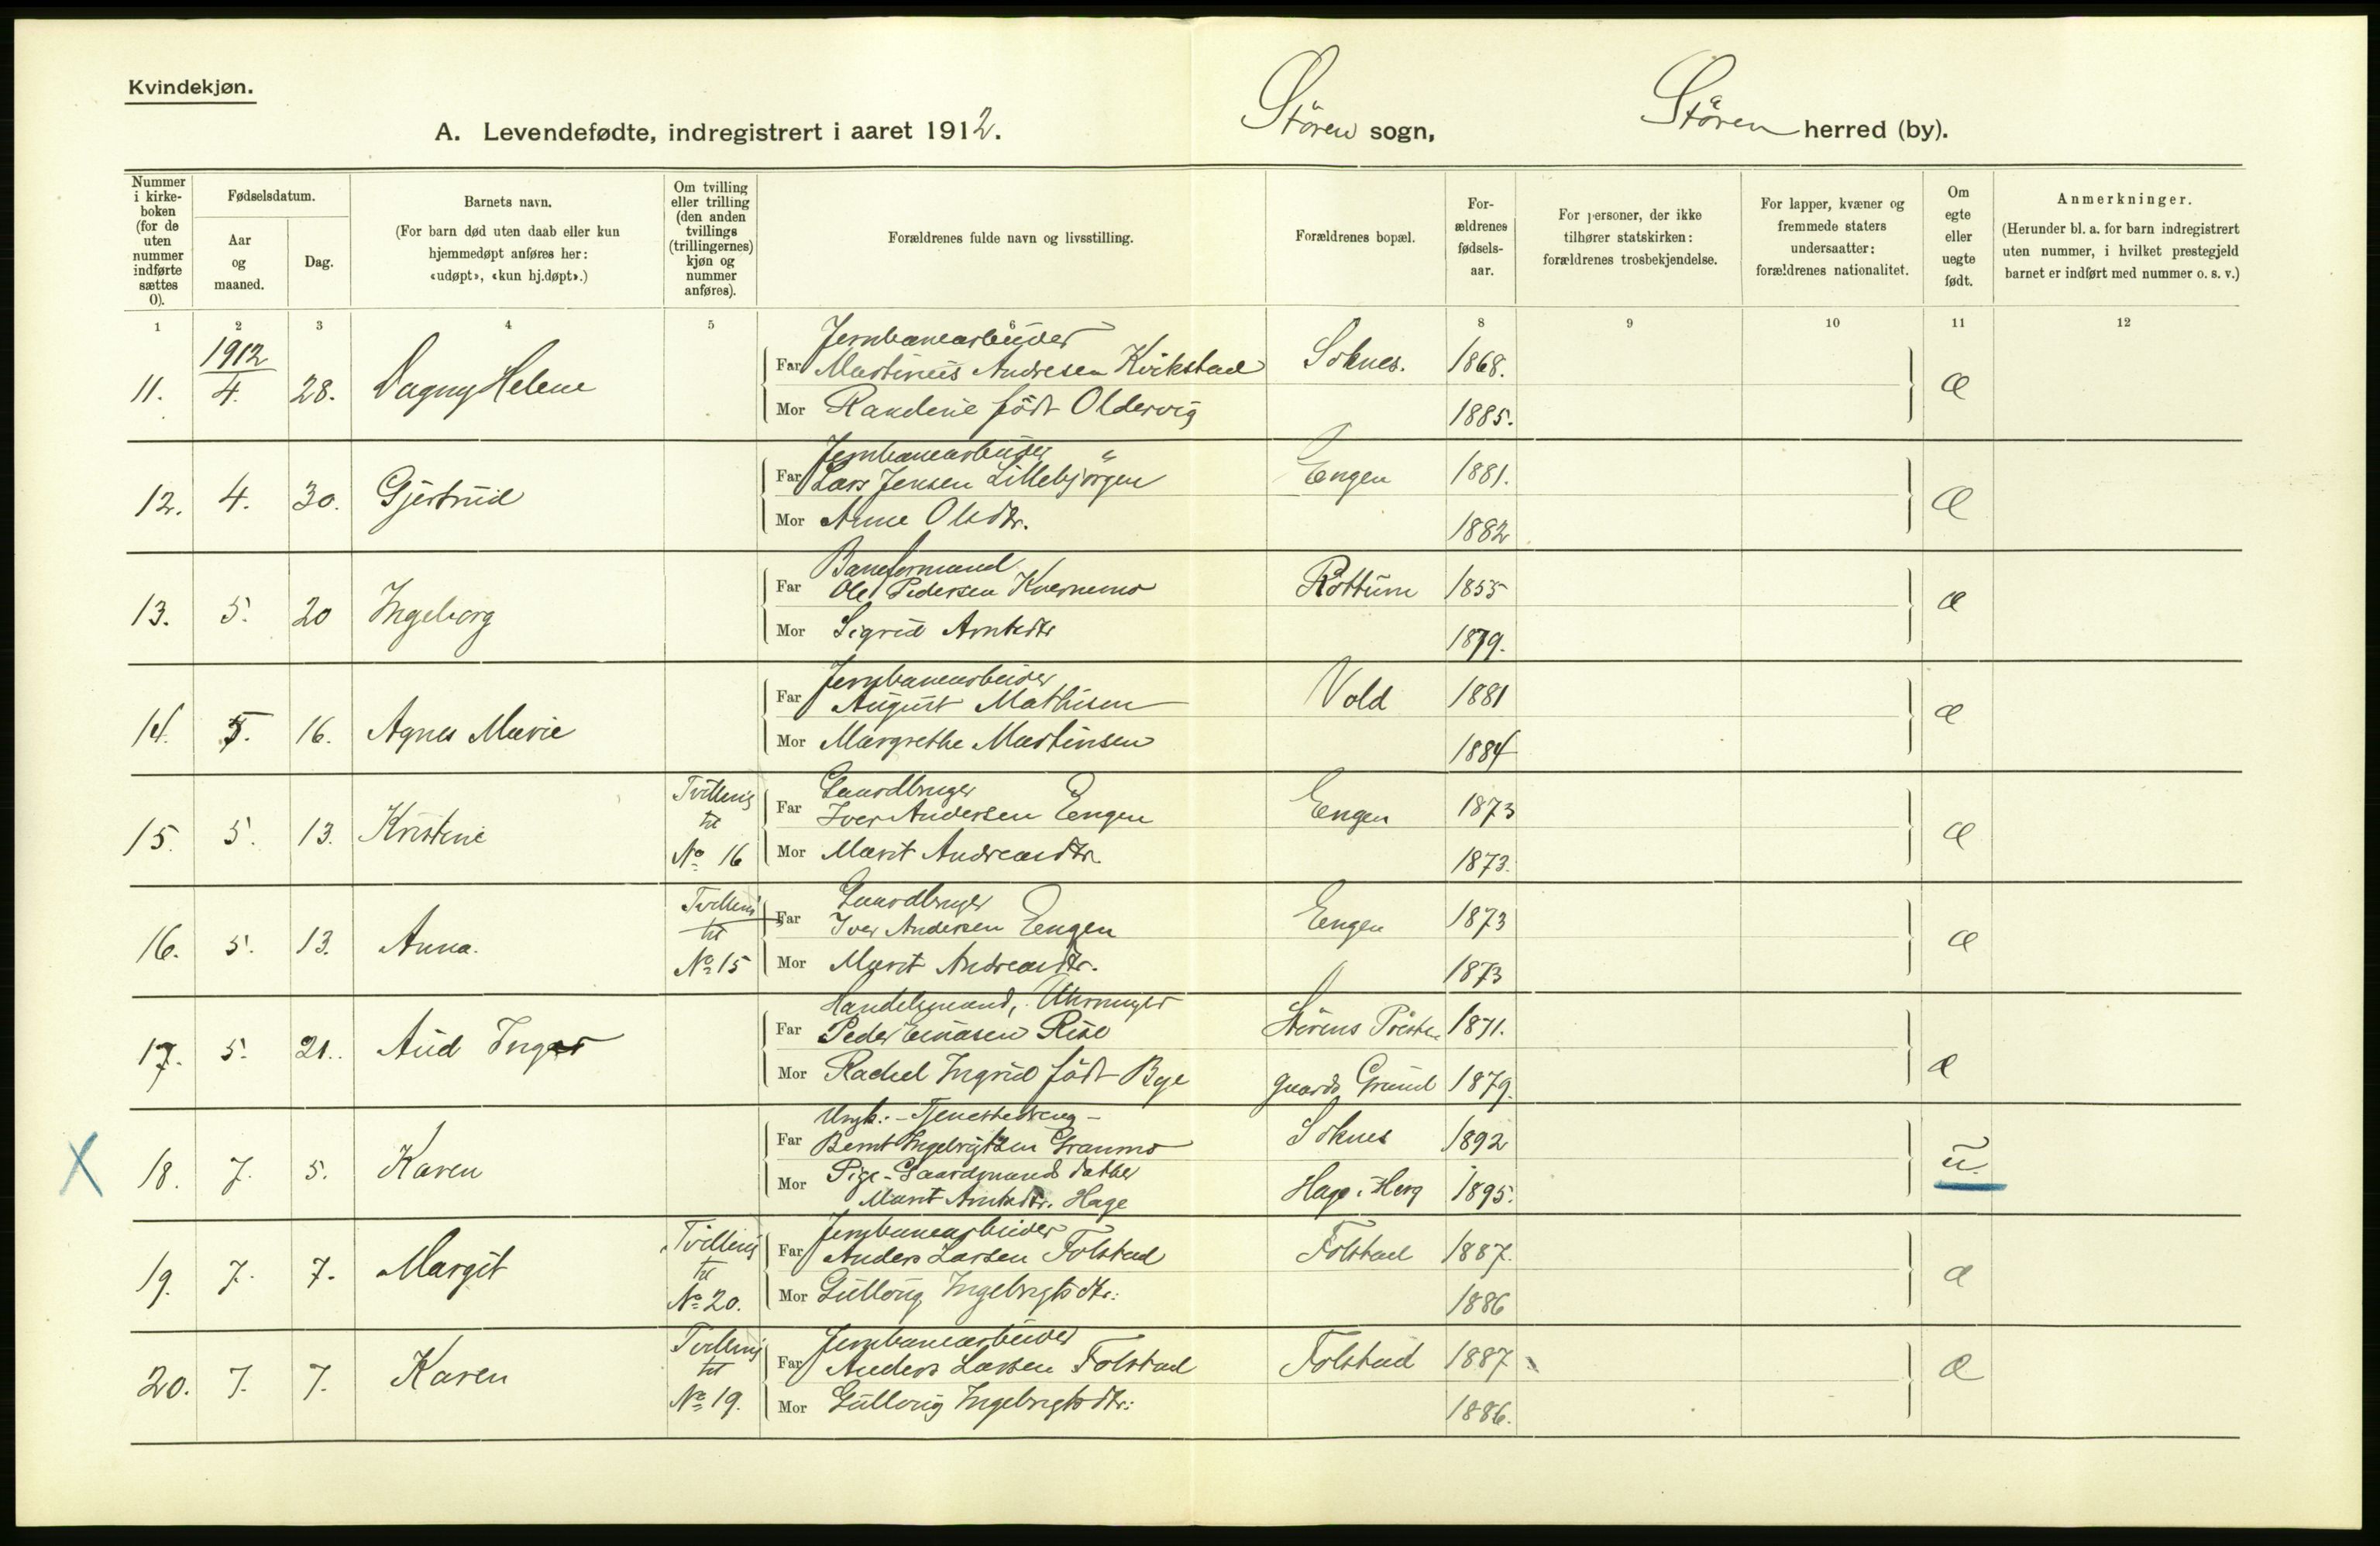 Kvindekjøn.
A. Levendefødte, indregistrert i aaret 1912. Stören sogn, Stören herred (by).
Nummer i kirke-boken (for de uten nummer indførte sættes 0).
Fødselsdatum.
Aar og maaned.
Dag.
Barnets navn.
(For barn død uten daab eller kun hjemmedøpt anføres her: «udøpt», «kun hj.døpt».)
Om tvilling eller trilling (den anden tvillings (trillingernes) kjøn og nummer anføres).
Forældrenes fulde navn og livsstilling.
Forældrenes bopæl.
For-ældrenes fødsels-aar.
For personer, der ikke tilhører statskirken: forældrenes trosbekjendelse.
For lapper, kvæner og fremmede staters undersaatter: forældrenes nationalitet.
Om egte eller uegte født.
Anmerkninger.
(Herunder bl. a. for barn indregistrert uten nummer, i hvilket prestegjeld barnet er indført med nummer o. s. v.)
1 2 3 4 5 6 8 9 10 11 12
1912
Jernbanearbeider
11. 4. 28. Dagny Helene Far Martinus Andresen Kvikstad Soknes. 1868. æ
Mor Randine født Oldervig 1885.
Jernbanearbeider
12. 4. 30. Gjertrud Far Lars Jensen Lillebjørgen Engen 1881. æ
Mor Anne Olsdtr. 1882
Baneformand
13. 5. 20 Ingeborg Far Ole Pedersen Kvernemo Rottum 1855 æ
Mor Sigrid Arntsdtr 1879.
Jernbanearbeider
14. 5. 16. Agnes Marie Far August Mathisen Vold 1881 æ
Mor Margrethe Martinsen 1884
Gaardbruger
15. 5. 13. Kristine Tvilling til No 16 Far Iver Andersen Engen Engen 1873 æ
Mor Marit Andreasdtr. 1873.
Gaardbruger
16. 5. 13. Anna. Tvilling til No 15 Far Iver Andersen Engen Engen 1873 æ
Mor Marit Andreasdtr. 1873
Handelsmand,
17. 5. 21. Aud Inger Far Peder Einarsen Rise Störens Preste 1871. æ
Mor Rachel Ingrid født Bye gaards Grund 1879.
Ungk. - Tjenestedreng -
X 18. 7. 5. Karen Far Bernt Ingebrigtsen Granmo Soknes 1892 u.
Mor Pige - Gaardmands datter
Marit Arntsdtr. Hage Hage i Horg 1895.
Jernbanearbeider
19. 7. 7. Margit Tvilling til No 20. Far Anders Larsen Folstad Folstad 1887. æ
Mor Gullaug Ingebrigtsdtr: 1886
Jernbanearbeider
20. 7. 7. Karen Tvilling til No 19. Far Anders Larsen Folstad Folstad 1887 æ
Mor Gullaug Ingebrigtsdtr: 1886.